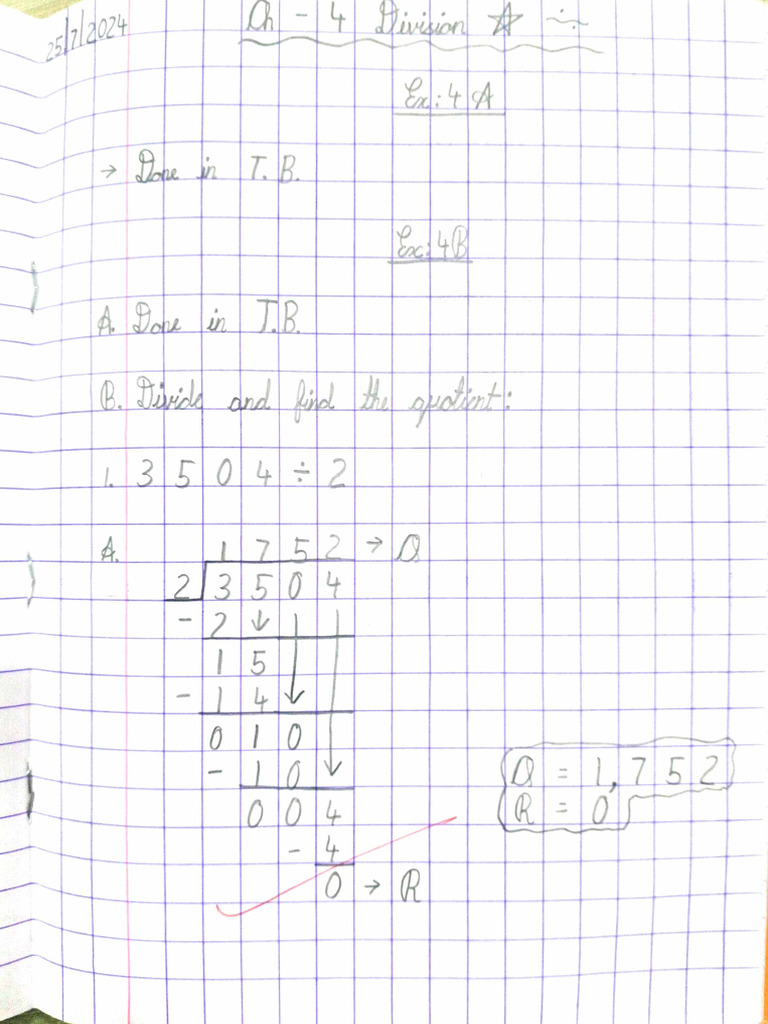 25/7/2024
Ch - 4 Division ☆ ÷
Ex: 4 A
→ Done in T.B.
Ex: 4B
A. Done in T.B.
B. Divide and find the quotient:
1. 3 5 0 4 ÷ 2
A. 1 7 5 2 → Q
2 3 5 0 4
- 2 ↓
1 5
- 1 4
0 1 0
- 1 0
Q = 1,7 5 2
R = 0
0 0 4
- 4
0 → R